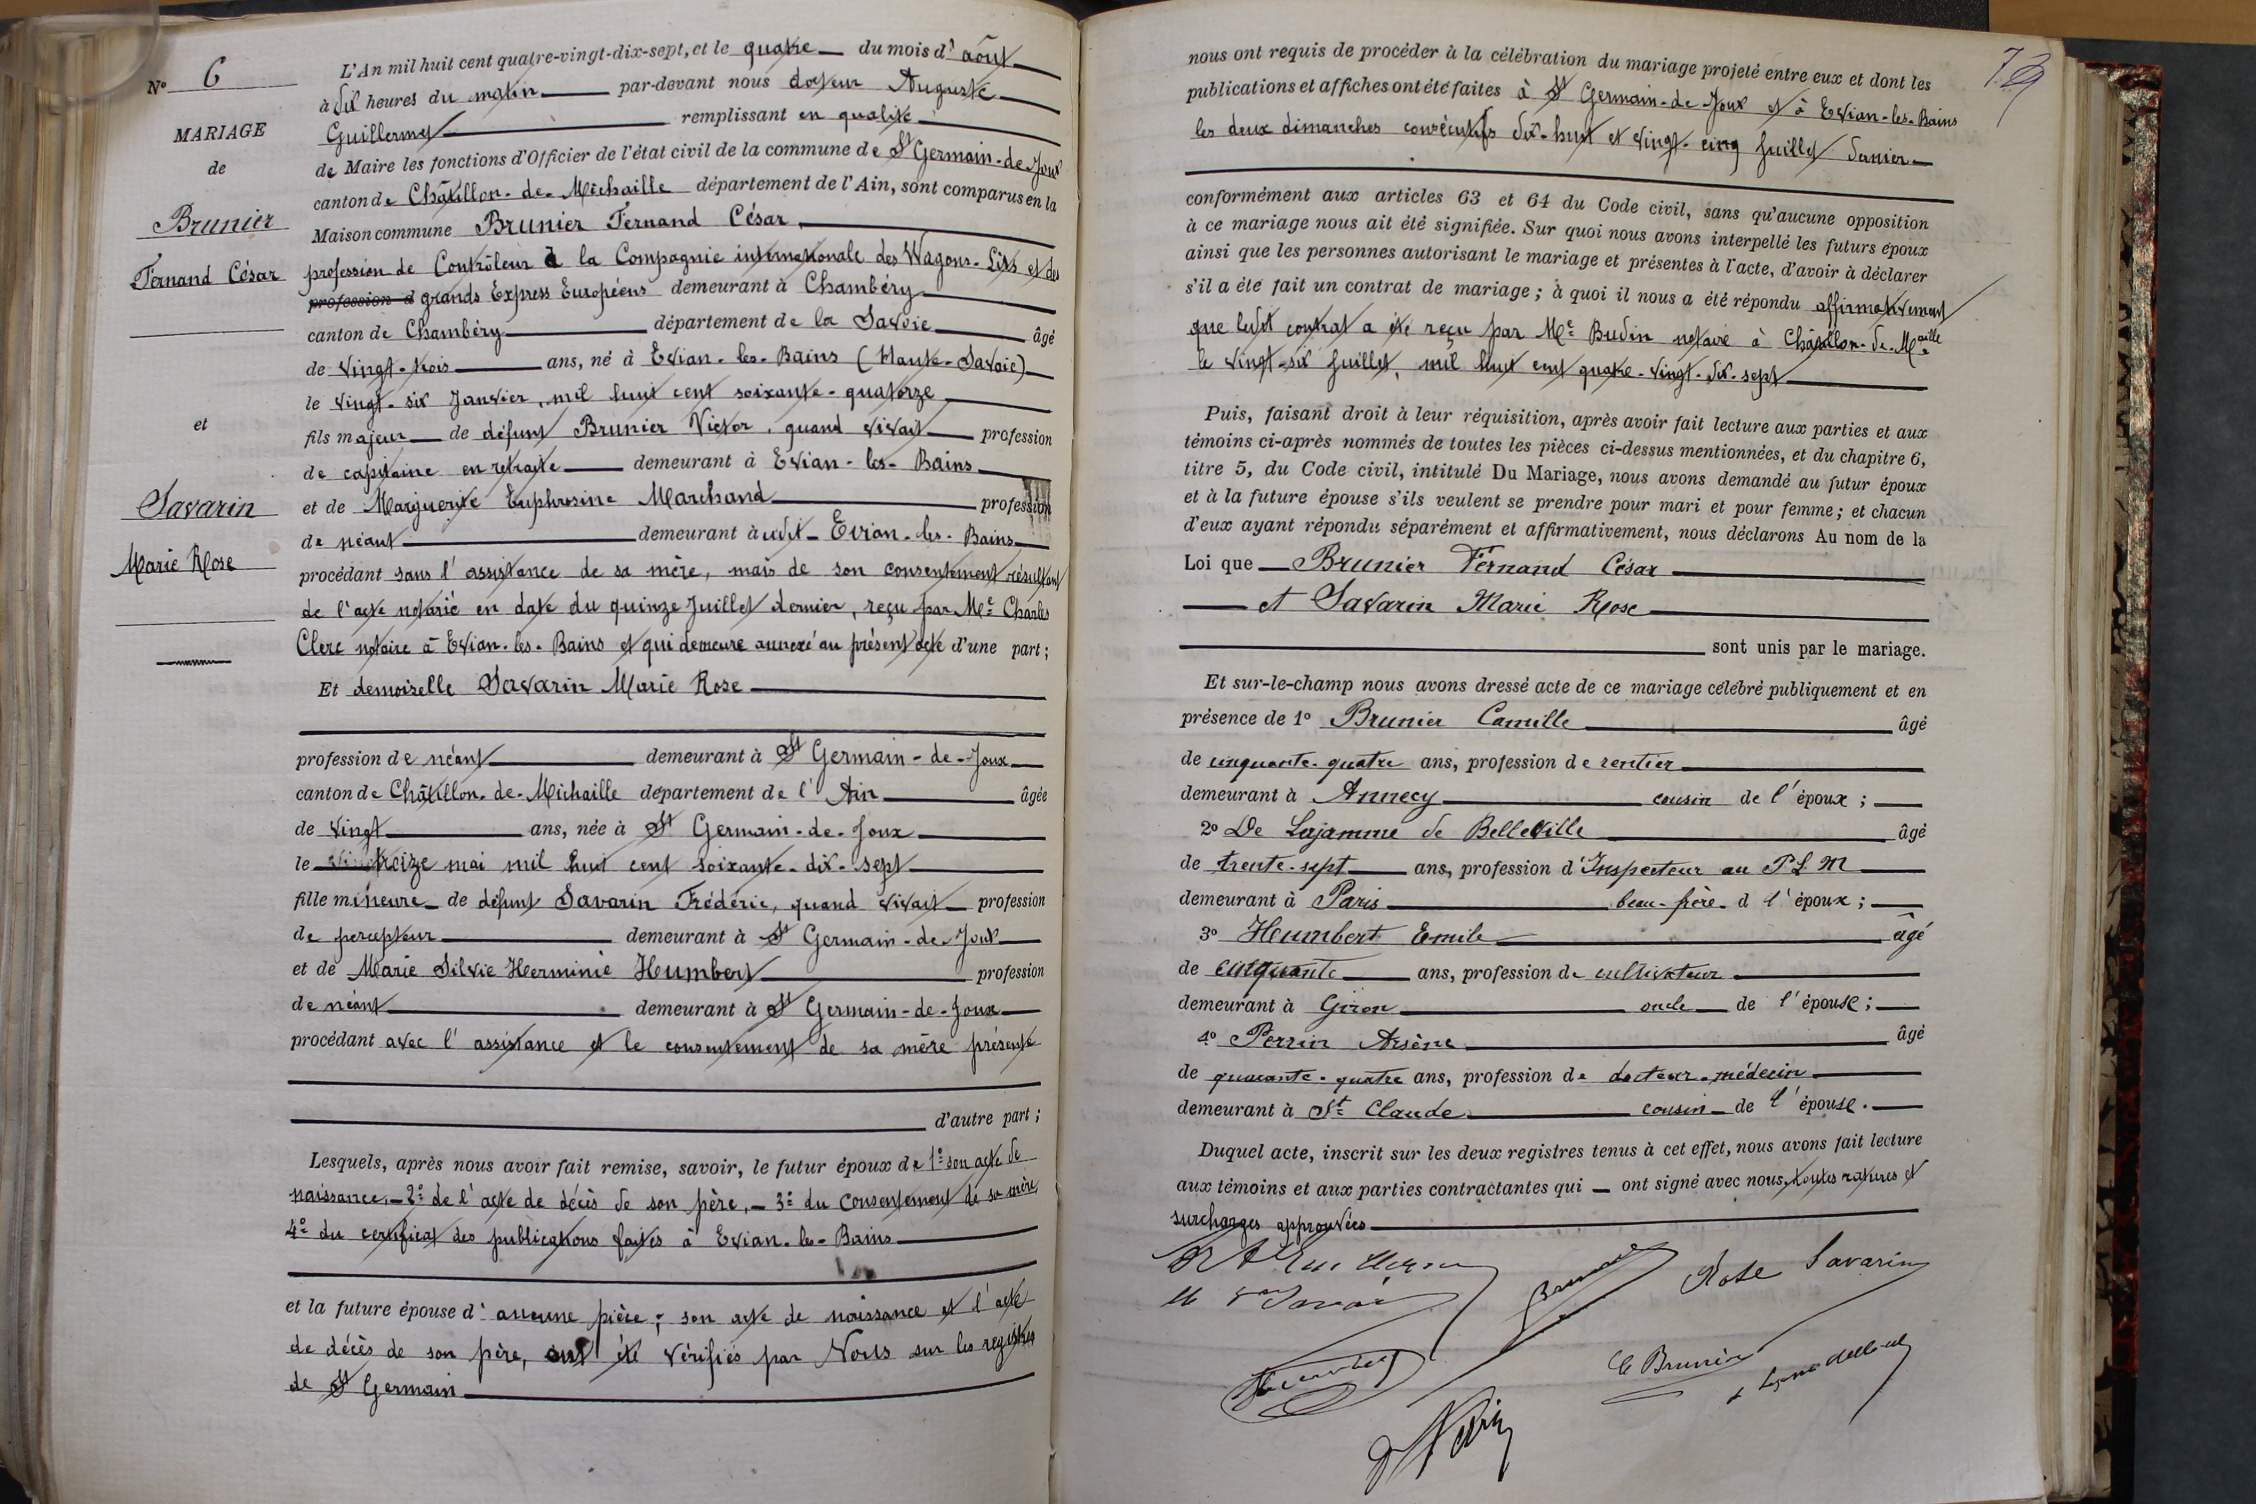 N° 6
MARIAGE
de
Brunier
Fernand César
et
Savarin
Marie Rose
L'An mil huit cent quatre-vingt-dix-sept, et le quatre du mois d'août
à dix heures du matin par-devant nous docteur Auguste
Guillermet remplissant en qualité
de Maire les fonctions d'Officier de l'état civil de la commune de St Germain-de-Joux
canton de Châtillon-de-Michaille département de l'Ain, sont comparus en la
Maison commune Brunier Fernand César
profession de Contrôleur à la Compagnie internationale des Wagons-Lits et des
profession d grands Express Européens demeurant à Chambéry
canton de Chambéry département de la Savoie âgé
de vingt-trois ans, né à Evian-les-Bains (Haute-Savoie)
le vingt-six Janvier, mil huit cent soixante-quatorze
fils majeur de défunt Brunier Victor, quand vivait profession
de capitaine en retraite demeurant à Evian-les-Bains
et de Marguerite Euphrosine Marchand profession
de néant demeurant à udit Evian-les-Bains
procédant sans l'assistance de sa mère, mais de son consentement résultant
de l'acte notarié en date du quinze Juillet dernier, reçu par Me Charles
Clerc notaire à Evian-les-Bains et qui demeure annexé au présent acte d'une part;
Et demoiselle Savarin Marie Rose
profession de néant demeurant à St Germain-de-Joux
canton de Châtillon-de-Michaille département de l'Ain âgée
de vingt ans, née à St Germain-de-Joux
le treize mai mil huit cent soixante-dix-sept
fille mineure de défunt Savarin Frédéric, quand vivait profession
de percepteur demeurant à St Germain-de-Joux
et de Marie Silvie Herminie Humbert profession
de néant demeurant à St Germain-de-Joux
procédant avec l'assistance et le consentement de sa mère présente
d'autre part;
Lesquels, après nous avoir fait remise, savoir, le futur époux de 1° son acte de
naissance,- 2° de l'acte de décès de son père,- 3° du consentement de sa mère
4° du certificat des publications faites à Evian-les-Bains
et la future épouse d'aucune pièce; son acte de naissance et l'acte
de décès de son père, ont été vérifiés par Nous sur les registres
de St Germain
nous ont requis de procéder à la célébration du mariage projeté entre eux et dont les
publications et affiches ont été faites à St Germain-de-Joux et à Evian-les-Bains
les deux dimanches consécutifs dix-huit et vingt-cinq Juillet dernier
conformément aux articles 63 et 64 du Code civil, sans qu'aucune opposition
à ce mariage nous ait été signifiée. Sur quoi nous avons interpellé les futurs époux
ainsi que les personnes autorisant le mariage et présentes à l'acte, d'avoir à déclarer
s'il a été fait un contrat de mariage; à quoi il nous a été répondu affirmativement
que ledit contrat a été reçu par Me Budin notaire à Châtillon-de-Maille
le vingt-six Juillet, mil huit cent quatre-vingt-dix-sept
Puis, faisant droit à leur réquisition, après avoir fait lecture aux parties et aux
témoins ci-après nommés de toutes les pièces ci-dessus mentionnées, et du chapitre 6,
titre 5, du Code civil, intitulé Du Mariage, nous avons demandé au futur époux
et à la future épouse s'ils veulent se prendre pour mari et pour femme; et chacun
d'eux ayant répondu séparément et affirmativement, nous déclarons Au nom de la
Loi que Brunier Fernand César
et Savarin Marie Rose
sont unis par le mariage.
Et sur-le-champ nous avons dressé acte de ce mariage célébré publiquement et en
présence de 1° Brunier Camille âgé
de cinquante-quatre ans, profession de rentier
demeurant à Annecy cousin de l'époux;
2° De Lajamme de Belleville âgé
de trente-sept ans, profession d'Inspecteur au P L M
demeurant à Paris beau-frère d l'époux;
3° Humbert Emile âgé
de cinquante ans, profession de cultivateur
demeurant à Giron oncle de l'épouse;
4° Perrin Arsène âgé
de quarante-quatre ans, profession de docteur-médecin
demeurant à St Claude cousin de l'épouse.
Duquel acte, inscrit sur les deux registres tenus à cet effet, nous avons fait lecture
aux témoins et aux parties contractantes qui ont signé avec nous, toutes ratures et
surcharges approuvées
Rose Savarin
C Brunier